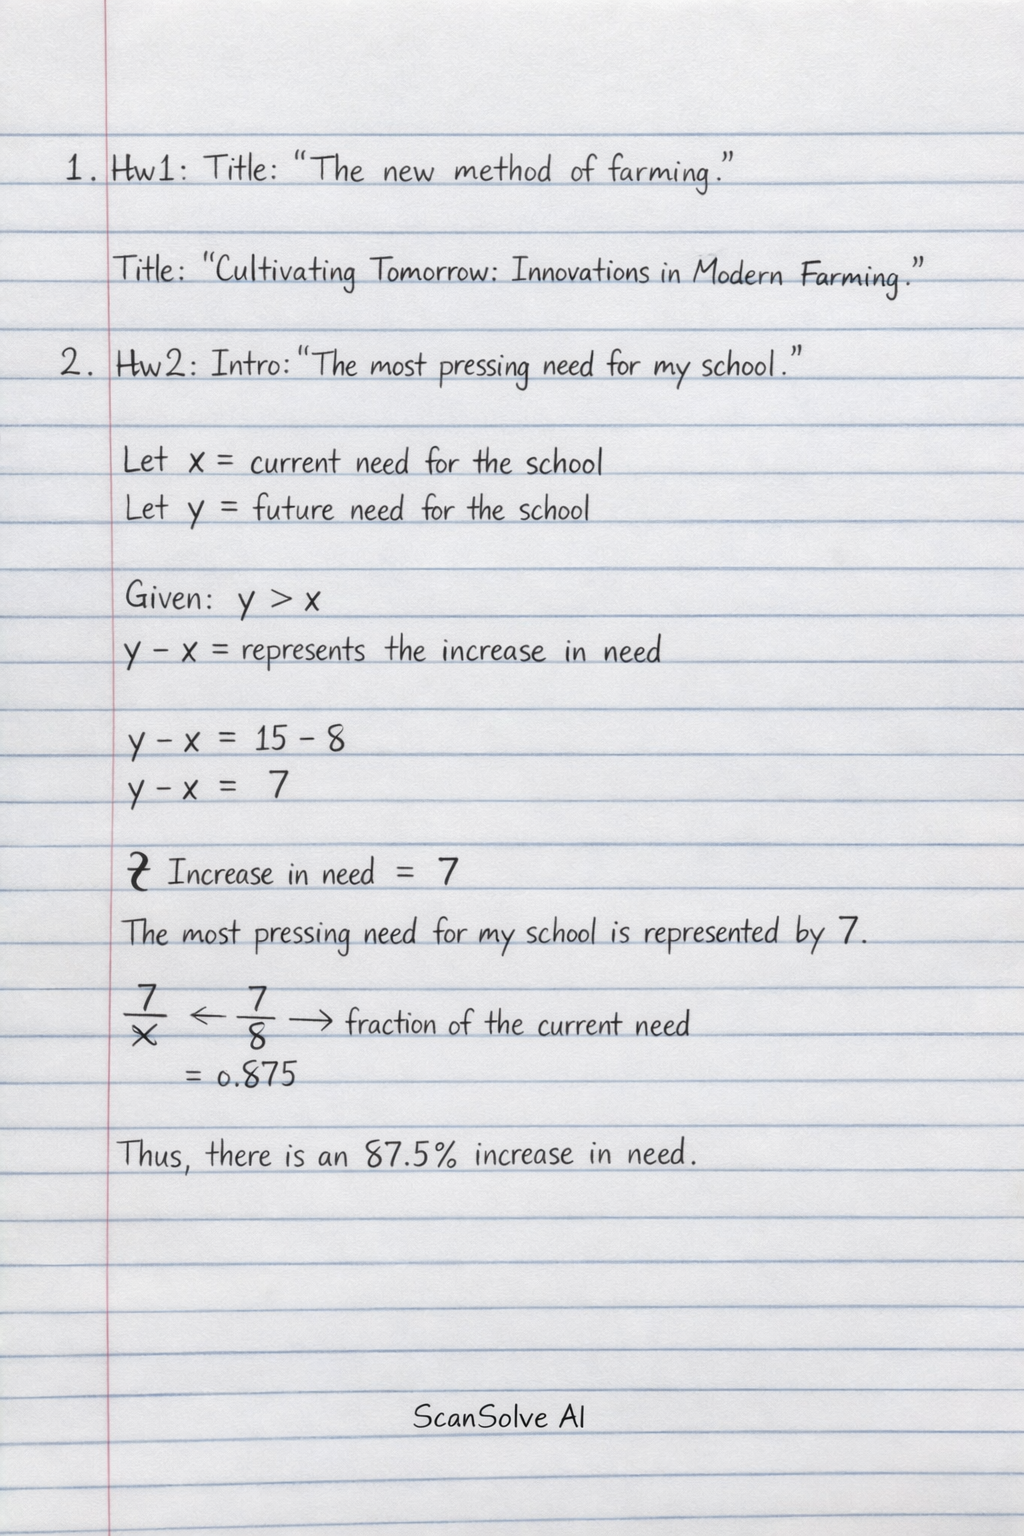 1. Hw1: Title: “The new method of farming.”
Title: “Cultivating Tomorrow: Innovations in Modern Farming.”
2. Hw2: Intro: “The most pressing need for my school.”
Let x = current need for the school
Let y = future need for the school
Given: y > x
y - x = represents the increase in need
y - x = 15 - 8
y - x = 7
Increase in need = 7
The most pressing need for my school is represented by 7.
7/x ← 7/8 → fraction of the current need
= 0.875
Thus, there is an 87.5% increase in need.
ScanSolve AI